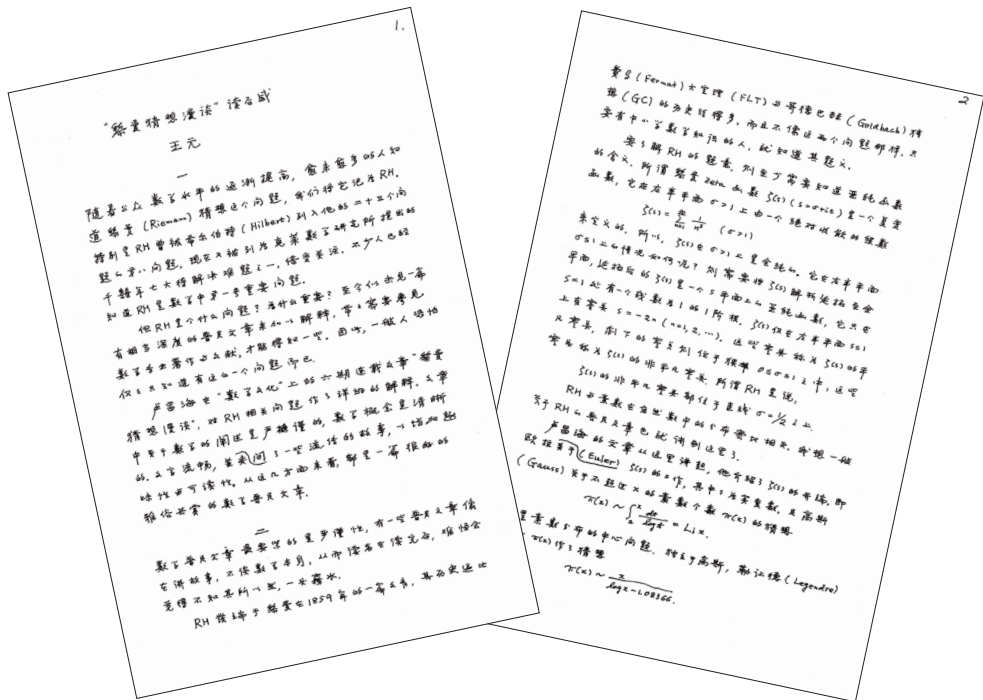 1.
"黎曼猜想漫谈"读后感
王元
一
随着公众数学水平的逐渐提高，愈来愈多的人知
道黎曼 (Riemann) 猜想这个问题，我们将它记为RH.
特别是RH曾被希尔伯特 (Hilbert) 列入他的二十三个问
题的第八问题，现在又被列为克莱数学研究所提出的
千禧年七大待解决难题之一，倍受关注，不少人已经
知道RH是数学中第一号重要问题.
但RH是个什么问题？为什么重要？至今似未见一篇
有相当深度的普及文章来加以解释，常常需要参见
数学专业著作与文献，才能得知一些。因此，一般人恐怕
仅仅只知道有这么一个问题而已.
卢昌海在"数学文化"上的六期连载文章"黎曼
猜想漫谈"，对RH相关问题作了详细的解释，文章
中关于数学的阐述是严格谨的，数学概念是清晰
的，文字流畅，并夹间了一些流传的故事，以增加趣
味性与可读性，从这几方面来看，都是一篇很好的
雅俗共赏的数学普及文章.
二
数学普及文章最要紧的是严谨性，有一些普及文章仅
在讲故事，不谈数学本身，从而读者在读完后，难悟会
觉得不知其所以然，一头雾水.
RH发端于黎曼在1859年的一篇文章，其历史远比
2
费马 (Fermat) 大定理 (FLT) 与哥德巴赫 (Goldbach) 猜
想 (GC) 的历史短得多，而且不像这两个问题那样，只
要有中小学数学知识的人，就知道其题义.
要了解RH的题意，则至少需要知道亚纯函数
的含义. 所谓黎曼zeta函数 ζ(s) (s=σ+it) 是一个复变
函数，它在右半平面 σ>1 上由一个绝对收敛的级数
ζ(s) = ∑_{n=1}^∞ 1/n^s (σ>1)
来定义的. 所以，ζ(s)在σ>1上是全纯的. 它在左半平面
σ≤1上的情况如何呢？则需要将ζ(s)解析延拓至全
平面，延拓后的ζ(s)是一个s平面上的亚纯函数，它只在
s=1处有一个残数为1的1阶极. ζ(s)仅在左半平面
上有零点 s=-2n (n=1,2,…). 这些零点称为ζ(s)的平
凡零点，剩下的零点则位于狭带 0≤σ≤1 之中，这些
零点称为ζ(s)的非平凡零点. 所谓RH是说：
ζ(s)的非平凡零点都位于直线 σ=1/2 之上.
RH与素数在自然数中的分布密切相关. 我想一般
关于RH的普及文章也就讲到这里了.
卢昌海的文章从这里讲起，他介绍了ζ(s)的开端，即
欧拉 (Euler) 关于ζ(s)的工作，其中s为实变数，及高斯
(Gauss) 关于不超过x的素数个数π(x)的猜想
π(x) ~ ∫_2^x dt/log t = Li x.
是素数分布的中心问题. 独立于高斯，勒让德 (Legendre)
π(x)作了猜想
π(x) ~ x/(log x - 1.08366).